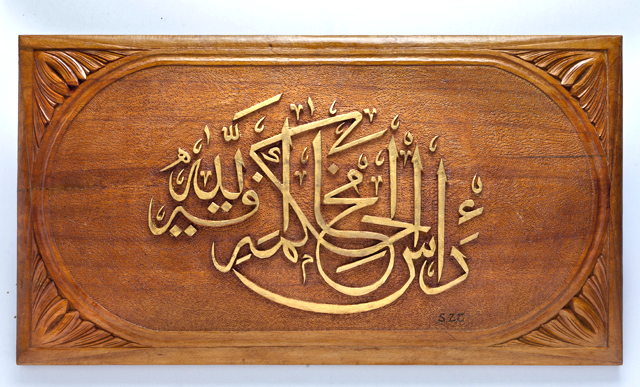 رأس الحكمة مخافة الله
SZC